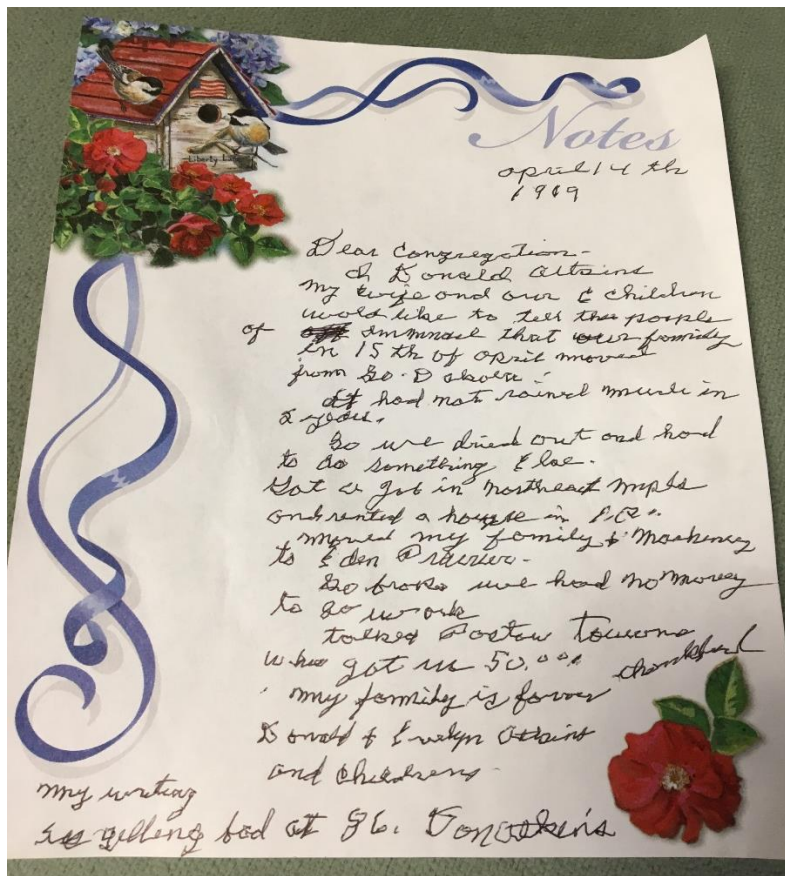 Liberty Lane
Notes
april 14 th
1969
Dear Congregation -
I Donald Atkins
my wife and our 6 children
would like to tell the people
of Immnael that our family
in 15 th of april moved
from So. Dakota -
It had not rained much in
2 years.
So we dried out and had
to do something Else.
Got a job in northeast mpls
and rented a house in
moved my family & Mackinery
to Eden Prairie -
So broke we had no money
to go work
talked Pastor
who got us 50.00
my family is forver thankful
Donald & Evelyn Atkins
and Childrens
my writing
is gelleng bad at 86. Don Atkins